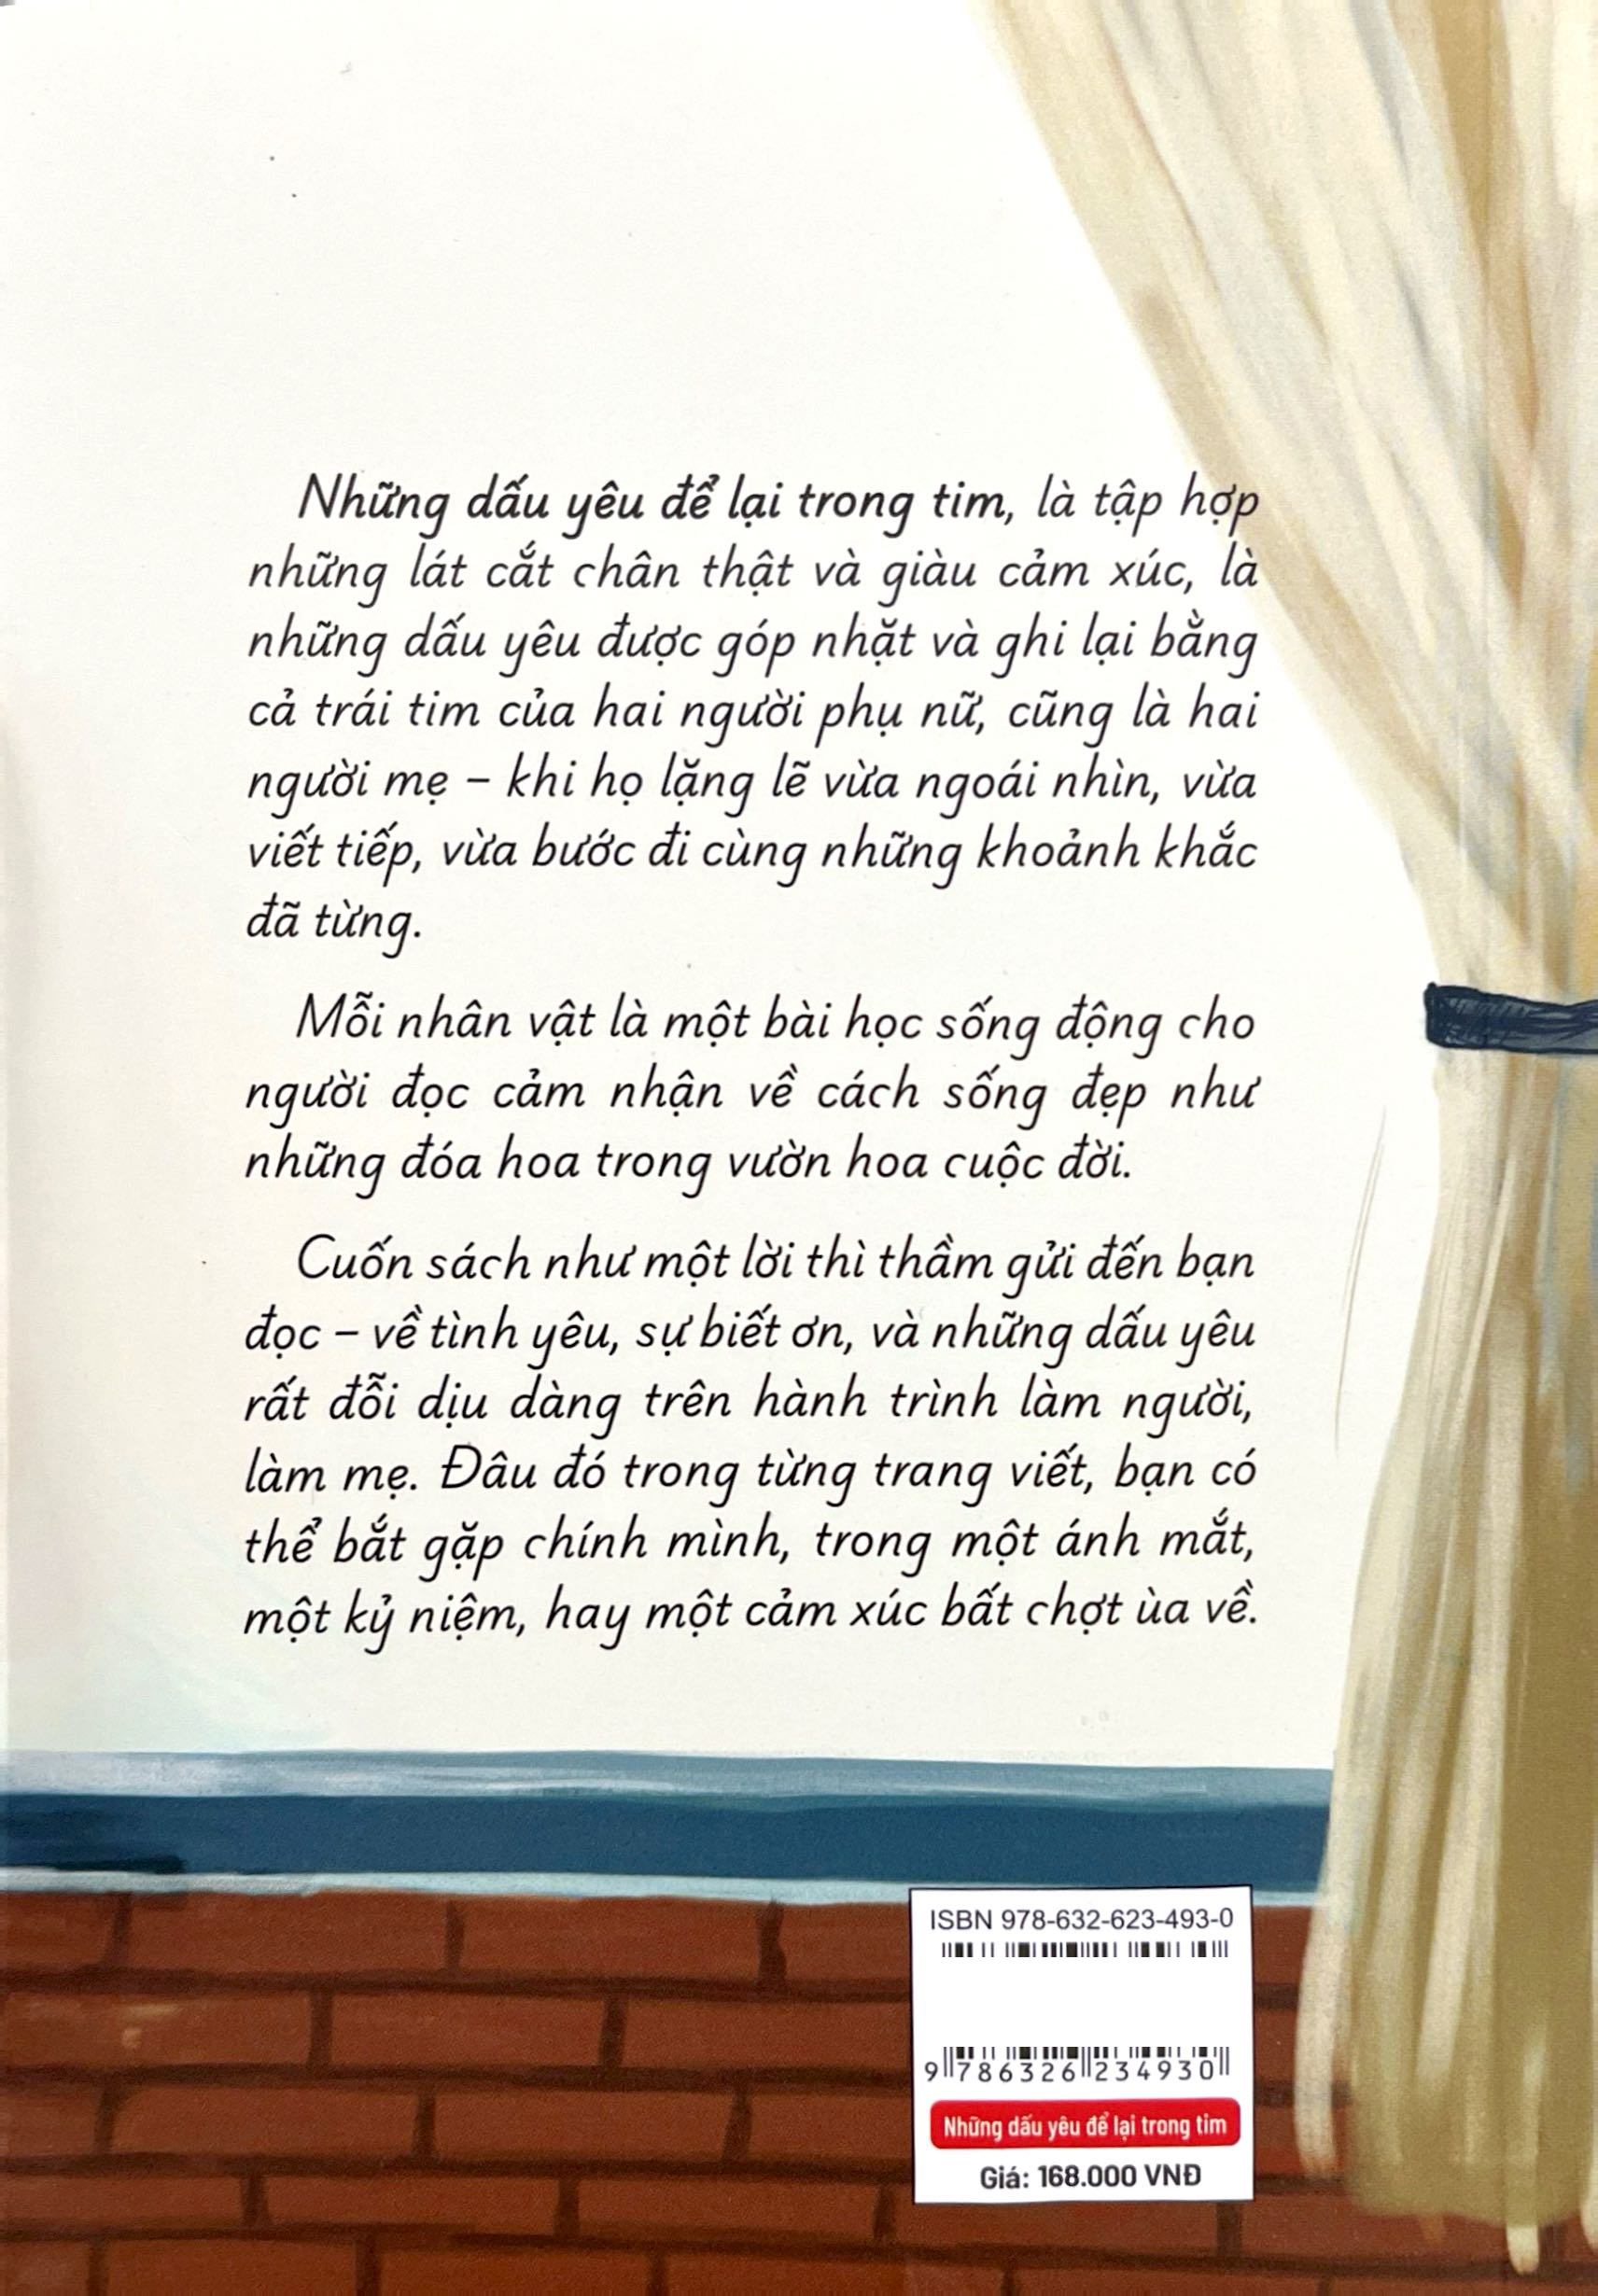 Những dấu yêu để lại trong tim, là tập hợp
những lát cắt chân thật và giàu cảm xúc, là
những dấu yêu được góp nhặt và ghi lại bằng
cả trái tim của hai người phụ nữ, cũng là hai
người mẹ – khi họ lặng lẽ vừa ngoái nhìn, vừa
viết tiếp, vừa bước đi cùng những khoảnh khắc
đã từng.
Mỗi nhân vật là một bài học sống động cho
người đọc cảm nhận về cách sống đẹp như
những đóa hoa trong vườn hoa cuộc đời.
Cuốn sách như một lời thì thầm gửi đến bạn
đọc – về tình yêu, sự biết ơn, và những dấu yêu
rất đỗi dịu dàng trên hành trình làm người,
làm mẹ. Đâu đó trong từng trang viết, bạn có
thể bắt gặp chính mình, trong một ánh mắt,
một kỷ niệm, hay một cảm xúc bất chợt ùa về.
ISBN 978-632-623-493-0
9 786326 234930
Những dấu yêu để lại trong tim
Giá: 168.000 VNĐ